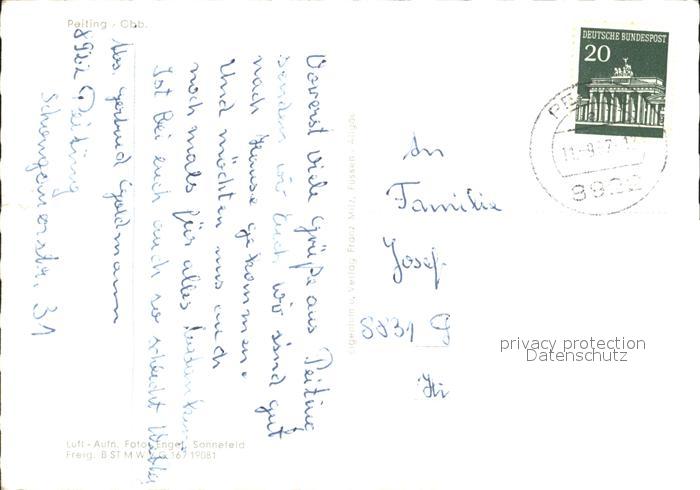 Peiting - Obb.
Vorerst viele Grüße aus Peiting
senden wir Euch, wir sind gut
nach Hause gekommen.
Und möchten uns auch
noch mals für alles bedanken.
Ist bei euch auch so schlecht Wetter
Abs. Gertrud Goldmann
8922 Peiting
Schongauerstr. 31
An
Familie
Josef
8831
Luft - Aufn. Foto Engel, Sonnefeld
Freig. B ST M W 167 19081
Verlag Franz Milz, Füssen - Allgäu
DEUTSCHE BUNDESPOST
20
PE
8922
privacy protection
Datenschutz